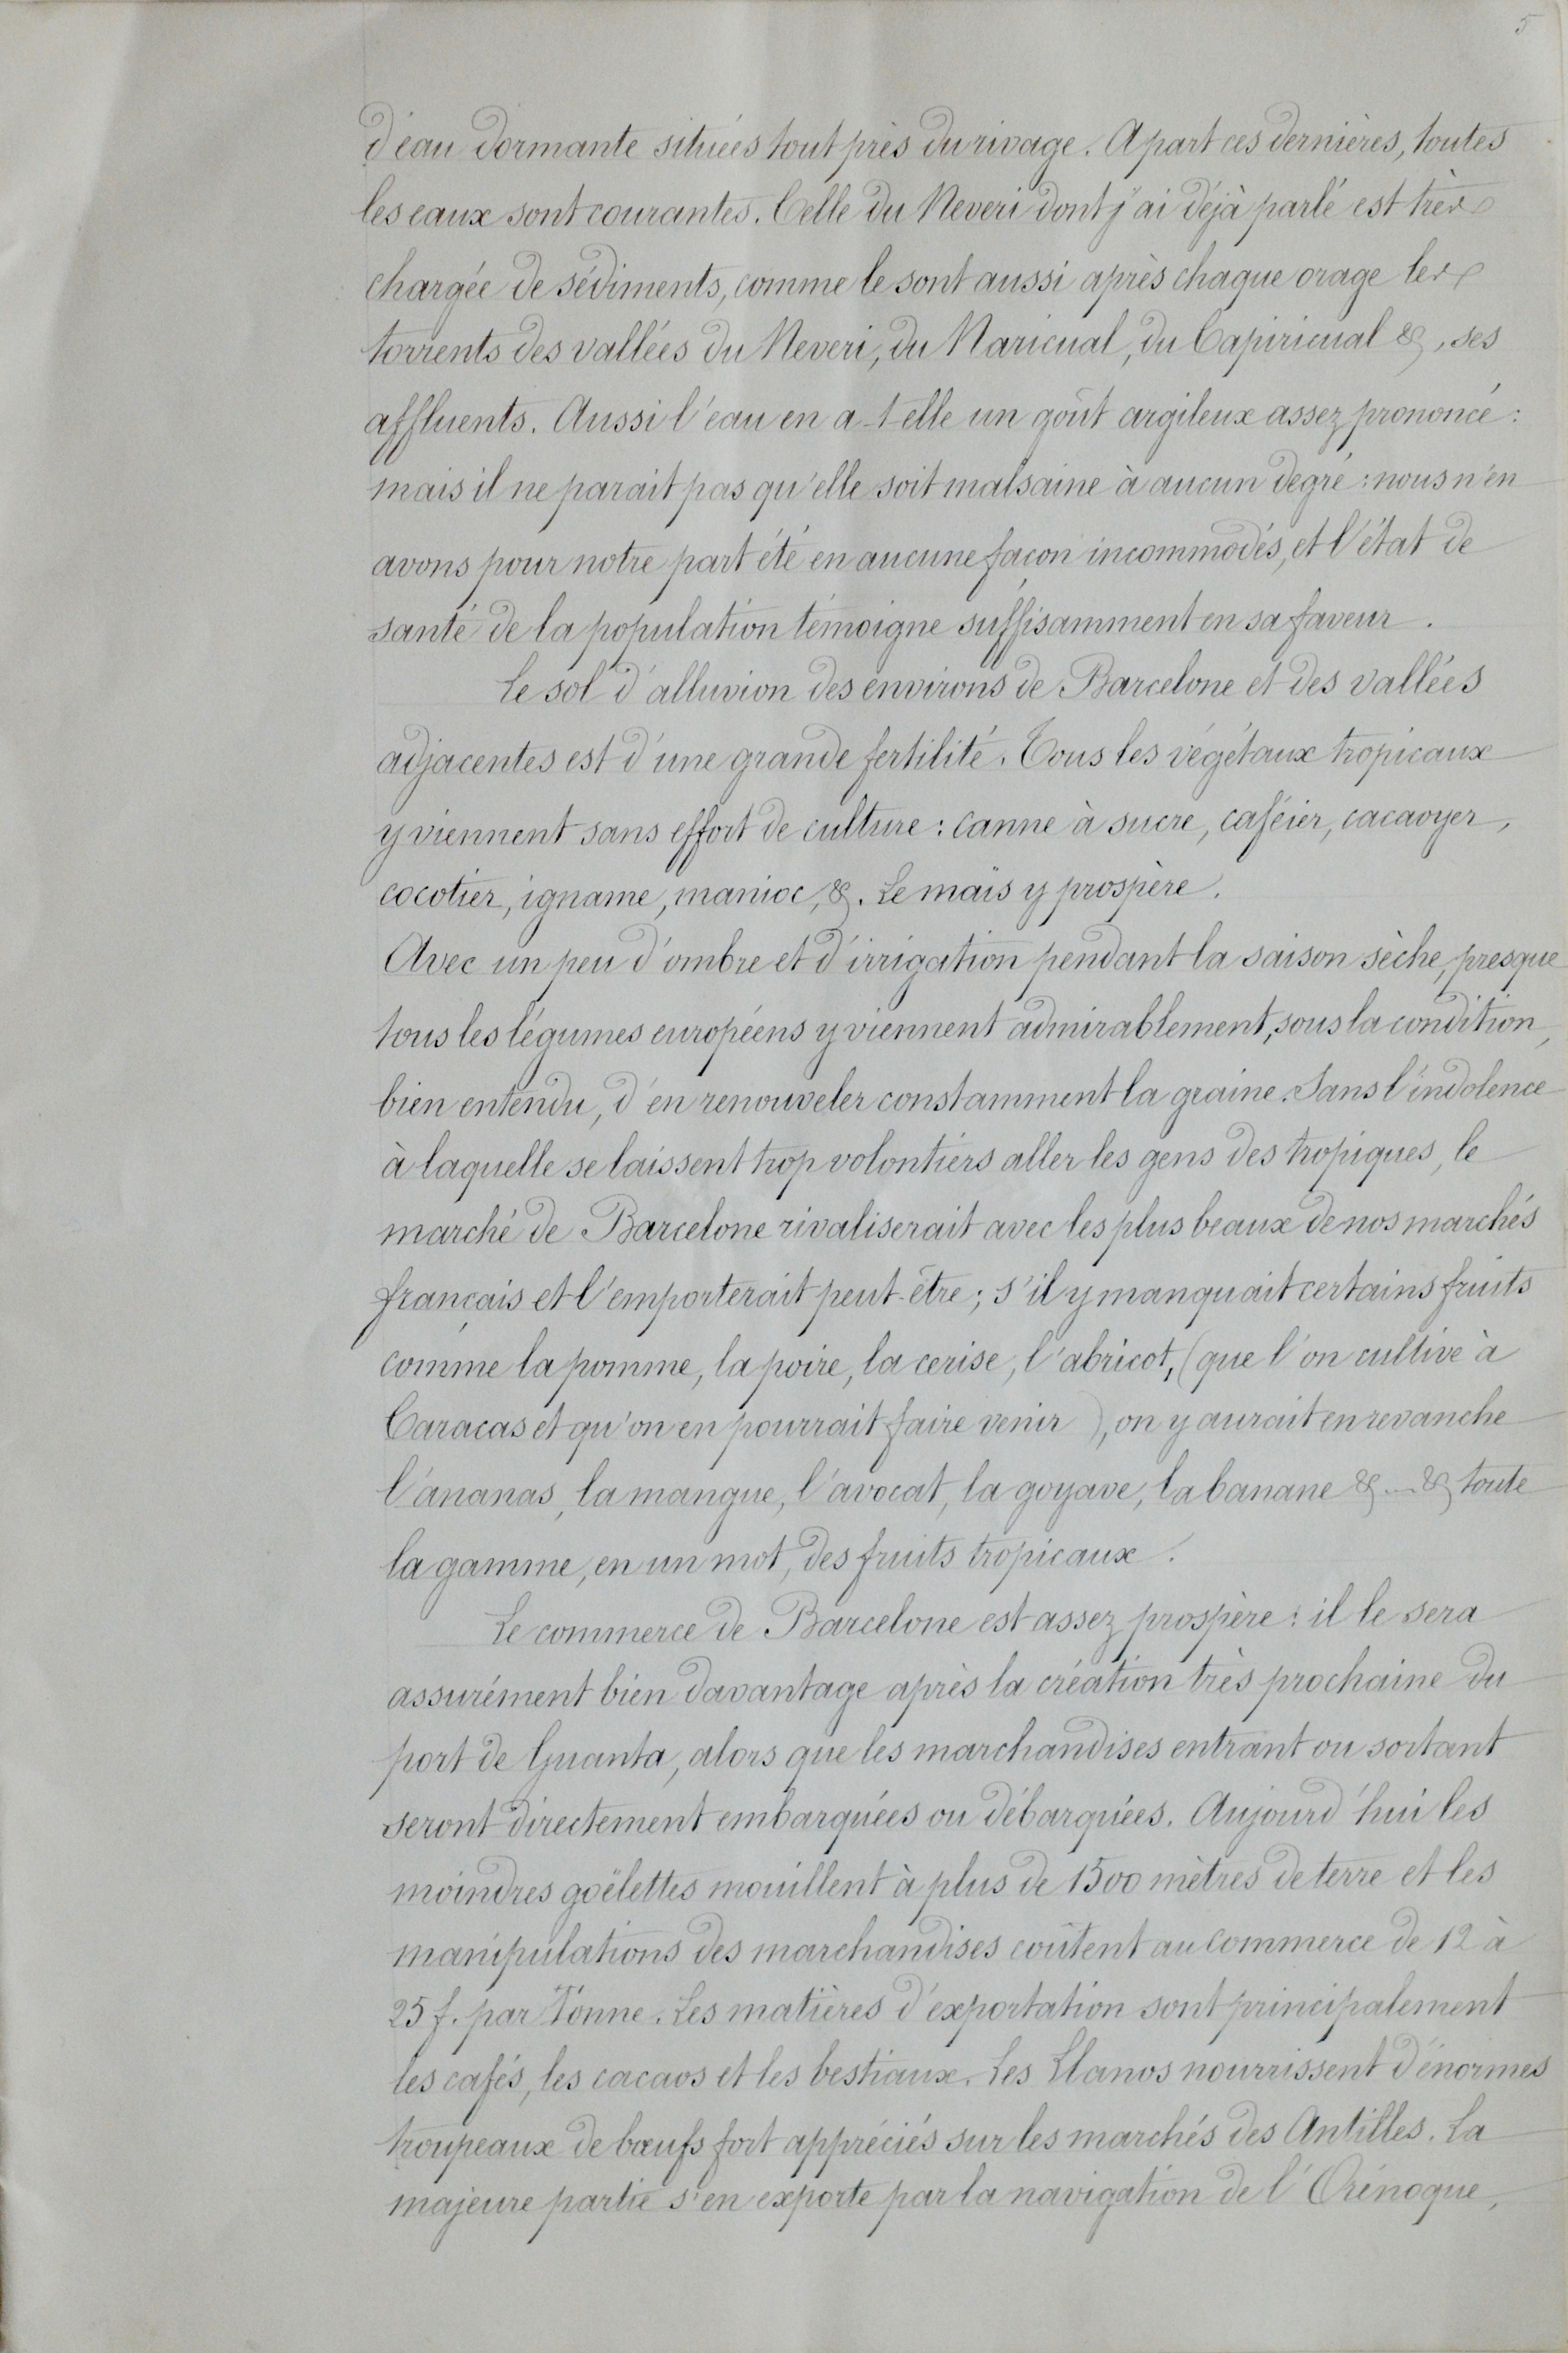 5
d'eau dormante situées tout près du rivage. A part ces dernières, toutes
les eaux sont courantes. Celle du Neveri dont j'ai déjà parlé est très
chargée de sédiments, comme le sont aussi après chaque orage les
torrents des vallées du Neveri, du Naricual, du Capiricual &, ses
affluents. Aussi l'eau en a-t-elle un goût argileux assez prononcé :
mais il ne parait pas qu'elle soit malsaine à aucun degré : nous n'en
avons pour notre part été en aucune façon incommodés, et l'état de
santé de la population témoigne suffisamment en sa faveur.
Le sol d'alluvion des environs de Barcelone et des vallées
adjacentes est d'une grande fertilité. Tous les végétaux tropicaux
y viennent sans effort de culture : canne à sucre, caféier, cacaoyer,
cocotier, igname, manioc, &. Le maïs y prospère.
Avec un peu d'ombre et d'irrigation pendant la saison sèche, presque
tous les légumes européens y viennent admirablement, sous la condition,
bien entendu, d'en renouveler constamment la graine. Sans l'indolence
à laquelle se laissent trop volontiers aller les gens des tropiques, le
marché de Barcelone rivaliserait avec les plus beaux de nos marchés
français et l'emporterait peut-être ; s'il y manquait certains fruits
comme la pomme, la poire, la cerise, l'abricot, (que l'on cultive à
Caracas et qu'on en pourrait faire venir), on y aurait en revanche
l'ananas, la mangue, l'avocat, la goyave, la banane &...& toute
la gamme, en un mot, des fruits tropicaux.
Le commerce de Barcelone est assez prospère : il le sera
assurément bien davantage après la création très prochaine du
port de Guanta, alors que les marchandises entrant ou sortant
seront directement embarquées ou débarquées. Aujourd'hui les
moindres goëlettes mouillent à plus de 1500 mètres de terre et les
manipulations des marchandises coûtent au commerce de 12 à
25 f. par Tonne. Les matières d'exportation sont principalement
les cafés, les cacaos et les bestiaux. Les Llanos nourrissent d'énormes
troupeaux de bœufs fort appréciés sur les marchés des Antilles. La
majeure partie s'en exporte par la navigation de l'Orénoque,